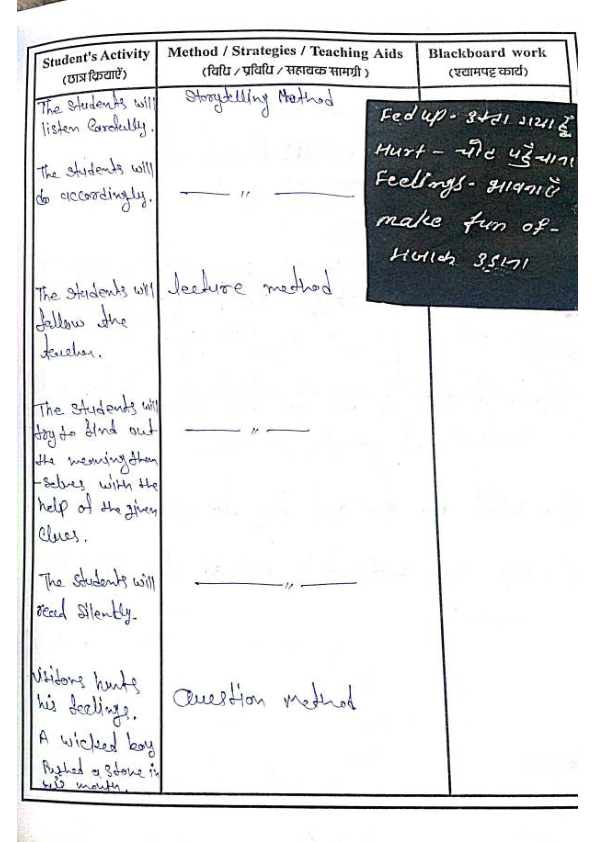 Student's Activity
(छात्र क्रियाएँ)
Method / Strategies / Teaching Aids
(विधि / प्रविधि / सहायक सामग्री )
Blackboard work
(श्यामपट्ट कार्य)
The Students will
listen Carefully.
Storytelling Method
Fed up - उकता गया हूँ
Hurt - चोट पहुँचाना
Feelings - भावनाएँ
make fun of -
मजाक उड़ाना
The students will
do accordingly.
—— " ——
The Students will
follow the
teacher.
lecture method
The Students will
try to find out
the meaning them
-selves with the
help of the given
Clues.
—— " ——
The Students will
read silently.
—— " ——
Visitors hurts
his feelings.
A wicked boy
Pushed a stone in
his mouth.
Question Method